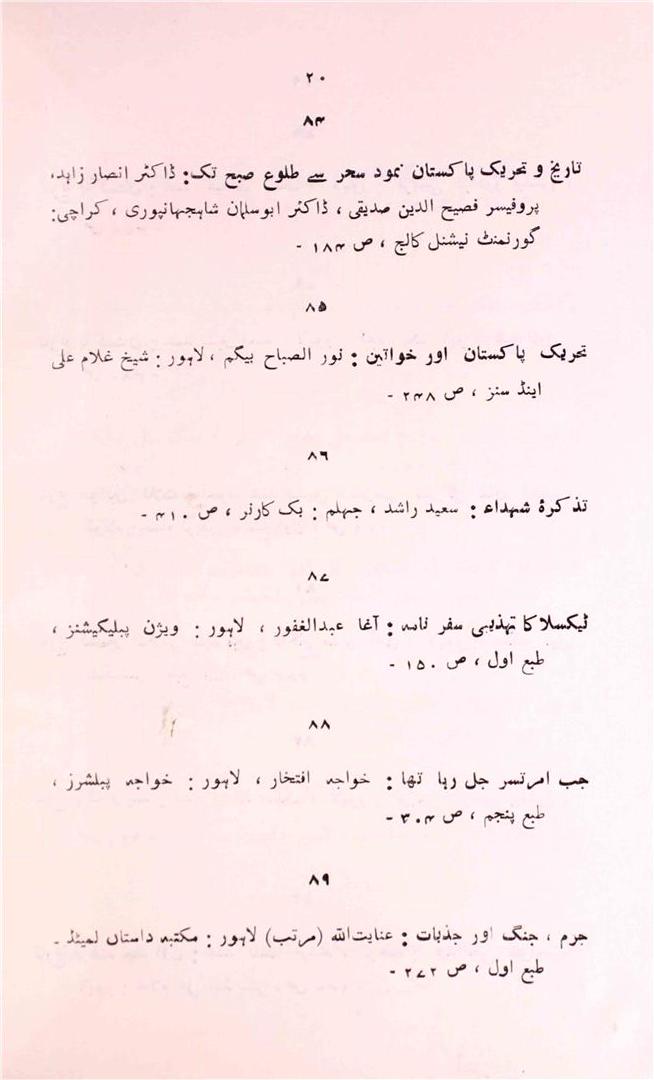 ۲۰
۸۴
تاریخ و تحریک پاکستان نمود سحر سے طلوع صبح تک: ڈاکٹر انصار زاہد،
پروفیسر فصیح الدین صدیقی ، ڈاکٹر ابوسلمان شاہجہانپوری ، کراچی:
گورنمنٹ نیشنل کالج ، ص ۱۸۴ -
۸۵
تحریک پاکستان اور خواتین : نور الصباح بیگم ، لاہور : شیخ غلام علی
اینڈ سنز ، ص ۲۴۸ -
۸۶
تذکرۂ شہداء : سعید راشد ، جہلم : بک کارنر ، ص ۴۱۰ -
۸۷
ٹیکسلا کا تہذیبی سفر نامہ : آغا عبدالغفور ، لاہور : ویژن پبلیکیشنز ،
طبع اول ، ص ۱۵۰ -
۸۸
جب امرتسر جل رہا تھا : خواجہ افتخار ، لاہور : خواجہ پبلشرز ،
طبع پنجم ، ص ۳۰۴ -
۸۹
جرم ، جنگ اور جذبات : عنایت اللہ (مرتب) لاہور : مکتبہ داستان لمیٹڈ -
طبع اول ، ص ۲۷۲ -